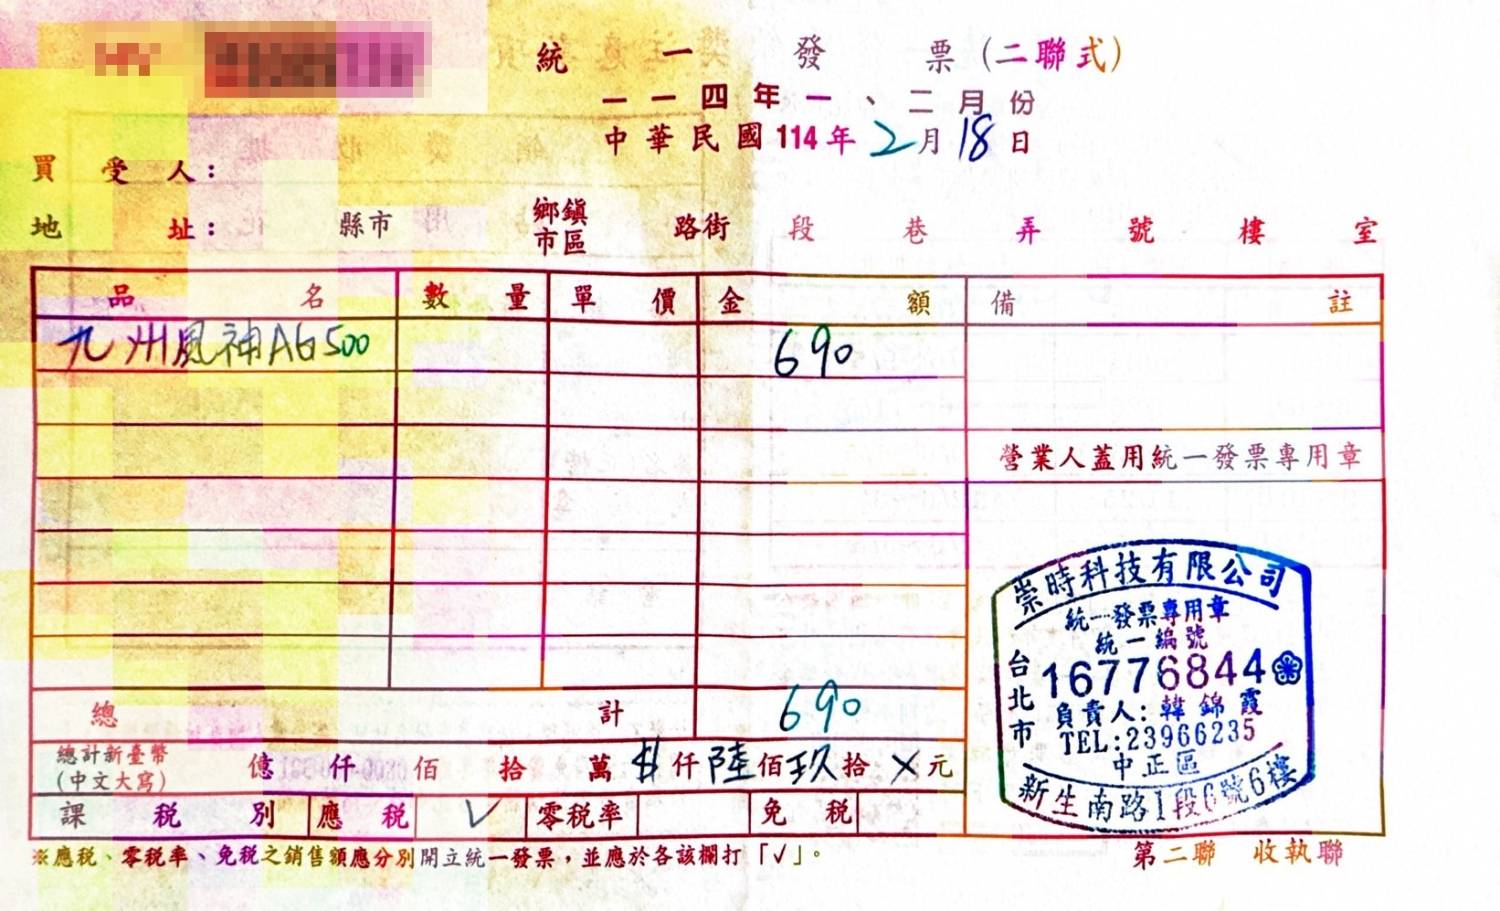 統一發票(二聯式)
一一四年一、二月份
中華民國114年2月18日
買受人:
地址: 縣市 鄉鎮市區 路街 段 巷 弄 號 樓 室
品名 數量 單價 金額 備註
九州風神AG500 690
營業人蓋用統一發票專用章
崇時科技有限公司
統一發票專用章
統一編號
16776844
台北市
負責人:韓錦霞
TEL:23966235
中正區
新生南路1段6號6樓
總計 690
總計新臺幣
(中文大寫)
億仟佰拾萬$仟陸佰玖拾X元
課稅別 應稅 √ 零稅率 免稅
※應稅、零稅率、免稅之銷售額應分別開立統一發票,並應於各該欄打「√」。
第二聯 收執聯